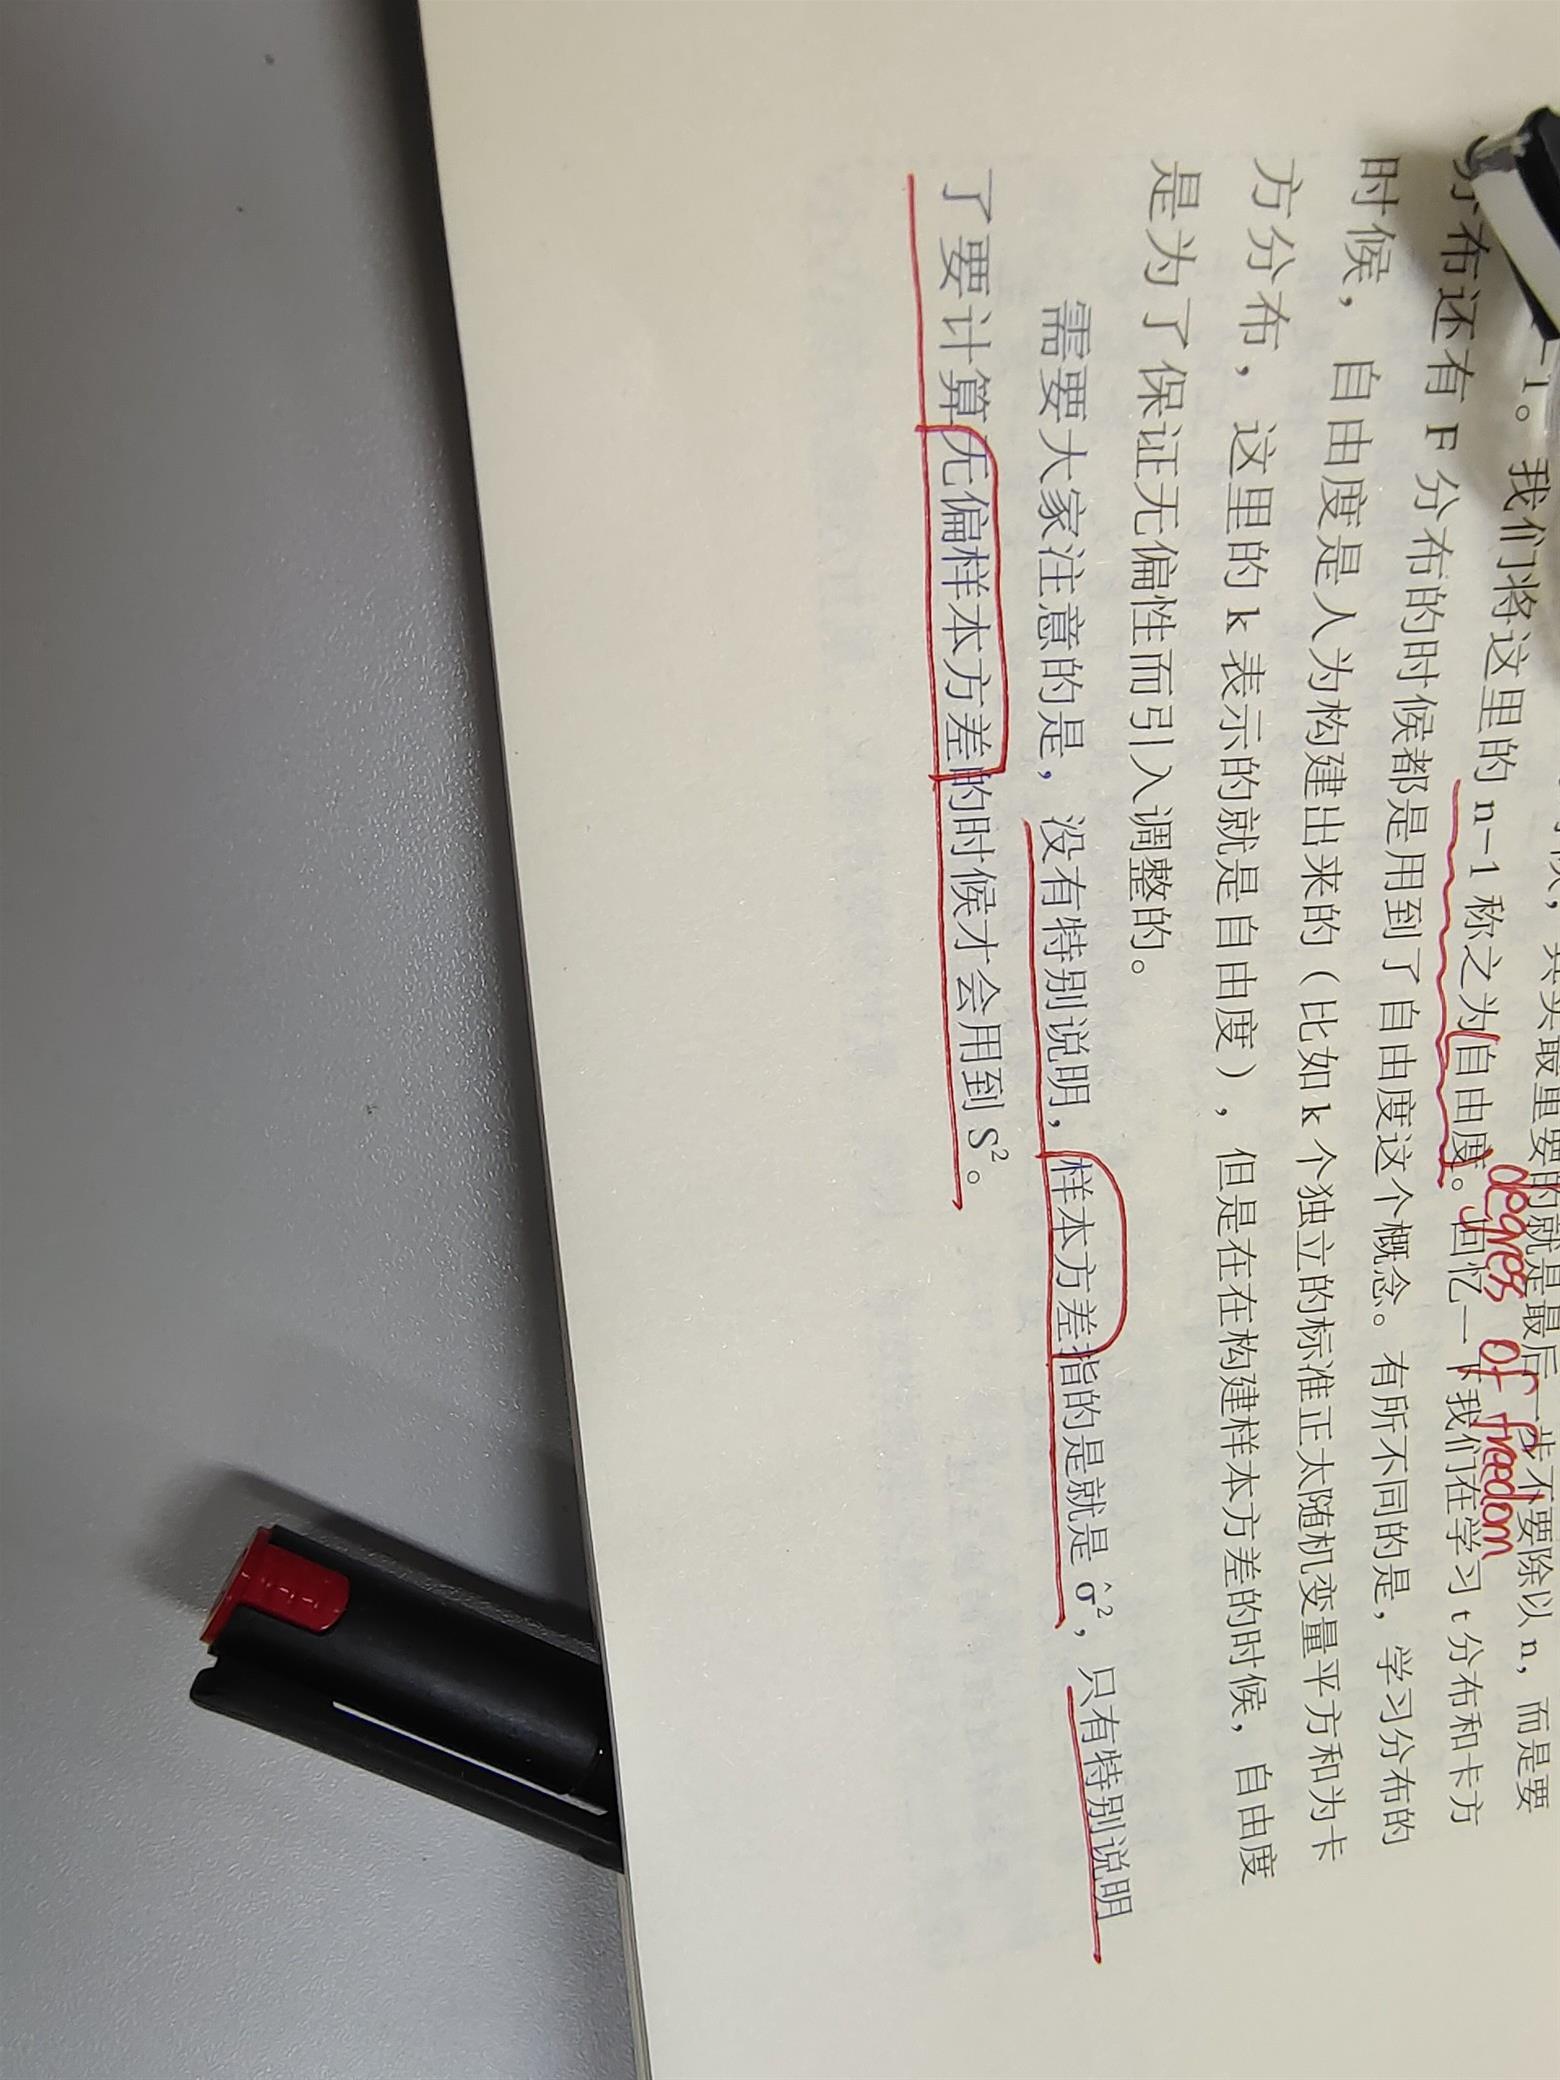 候，其实最重要的就是最后一步不要除以 n，而是要
-1。我们将这里的 n-1 称之为自由度。回忆一下我们在学习 t 分布和卡方
degrees of freedom
分布还有 F 分布的时候都是用到了自由度这个概念。有所不同的是，学习分布的
时候，自由度是人为构建出来的（比如 k 个独立的标准正太随机变量平方和为卡
方分布，这里的 k 表示的就是自由度），但是在在构建样本方差的时候，自由度
是为了保证无偏性而引入调整的。
需要大家注意的是，没有特别说明，样本方差指的是就是 σ̂²，只有特别说明
了要计算无偏样本方差的时候才会用到 S²。